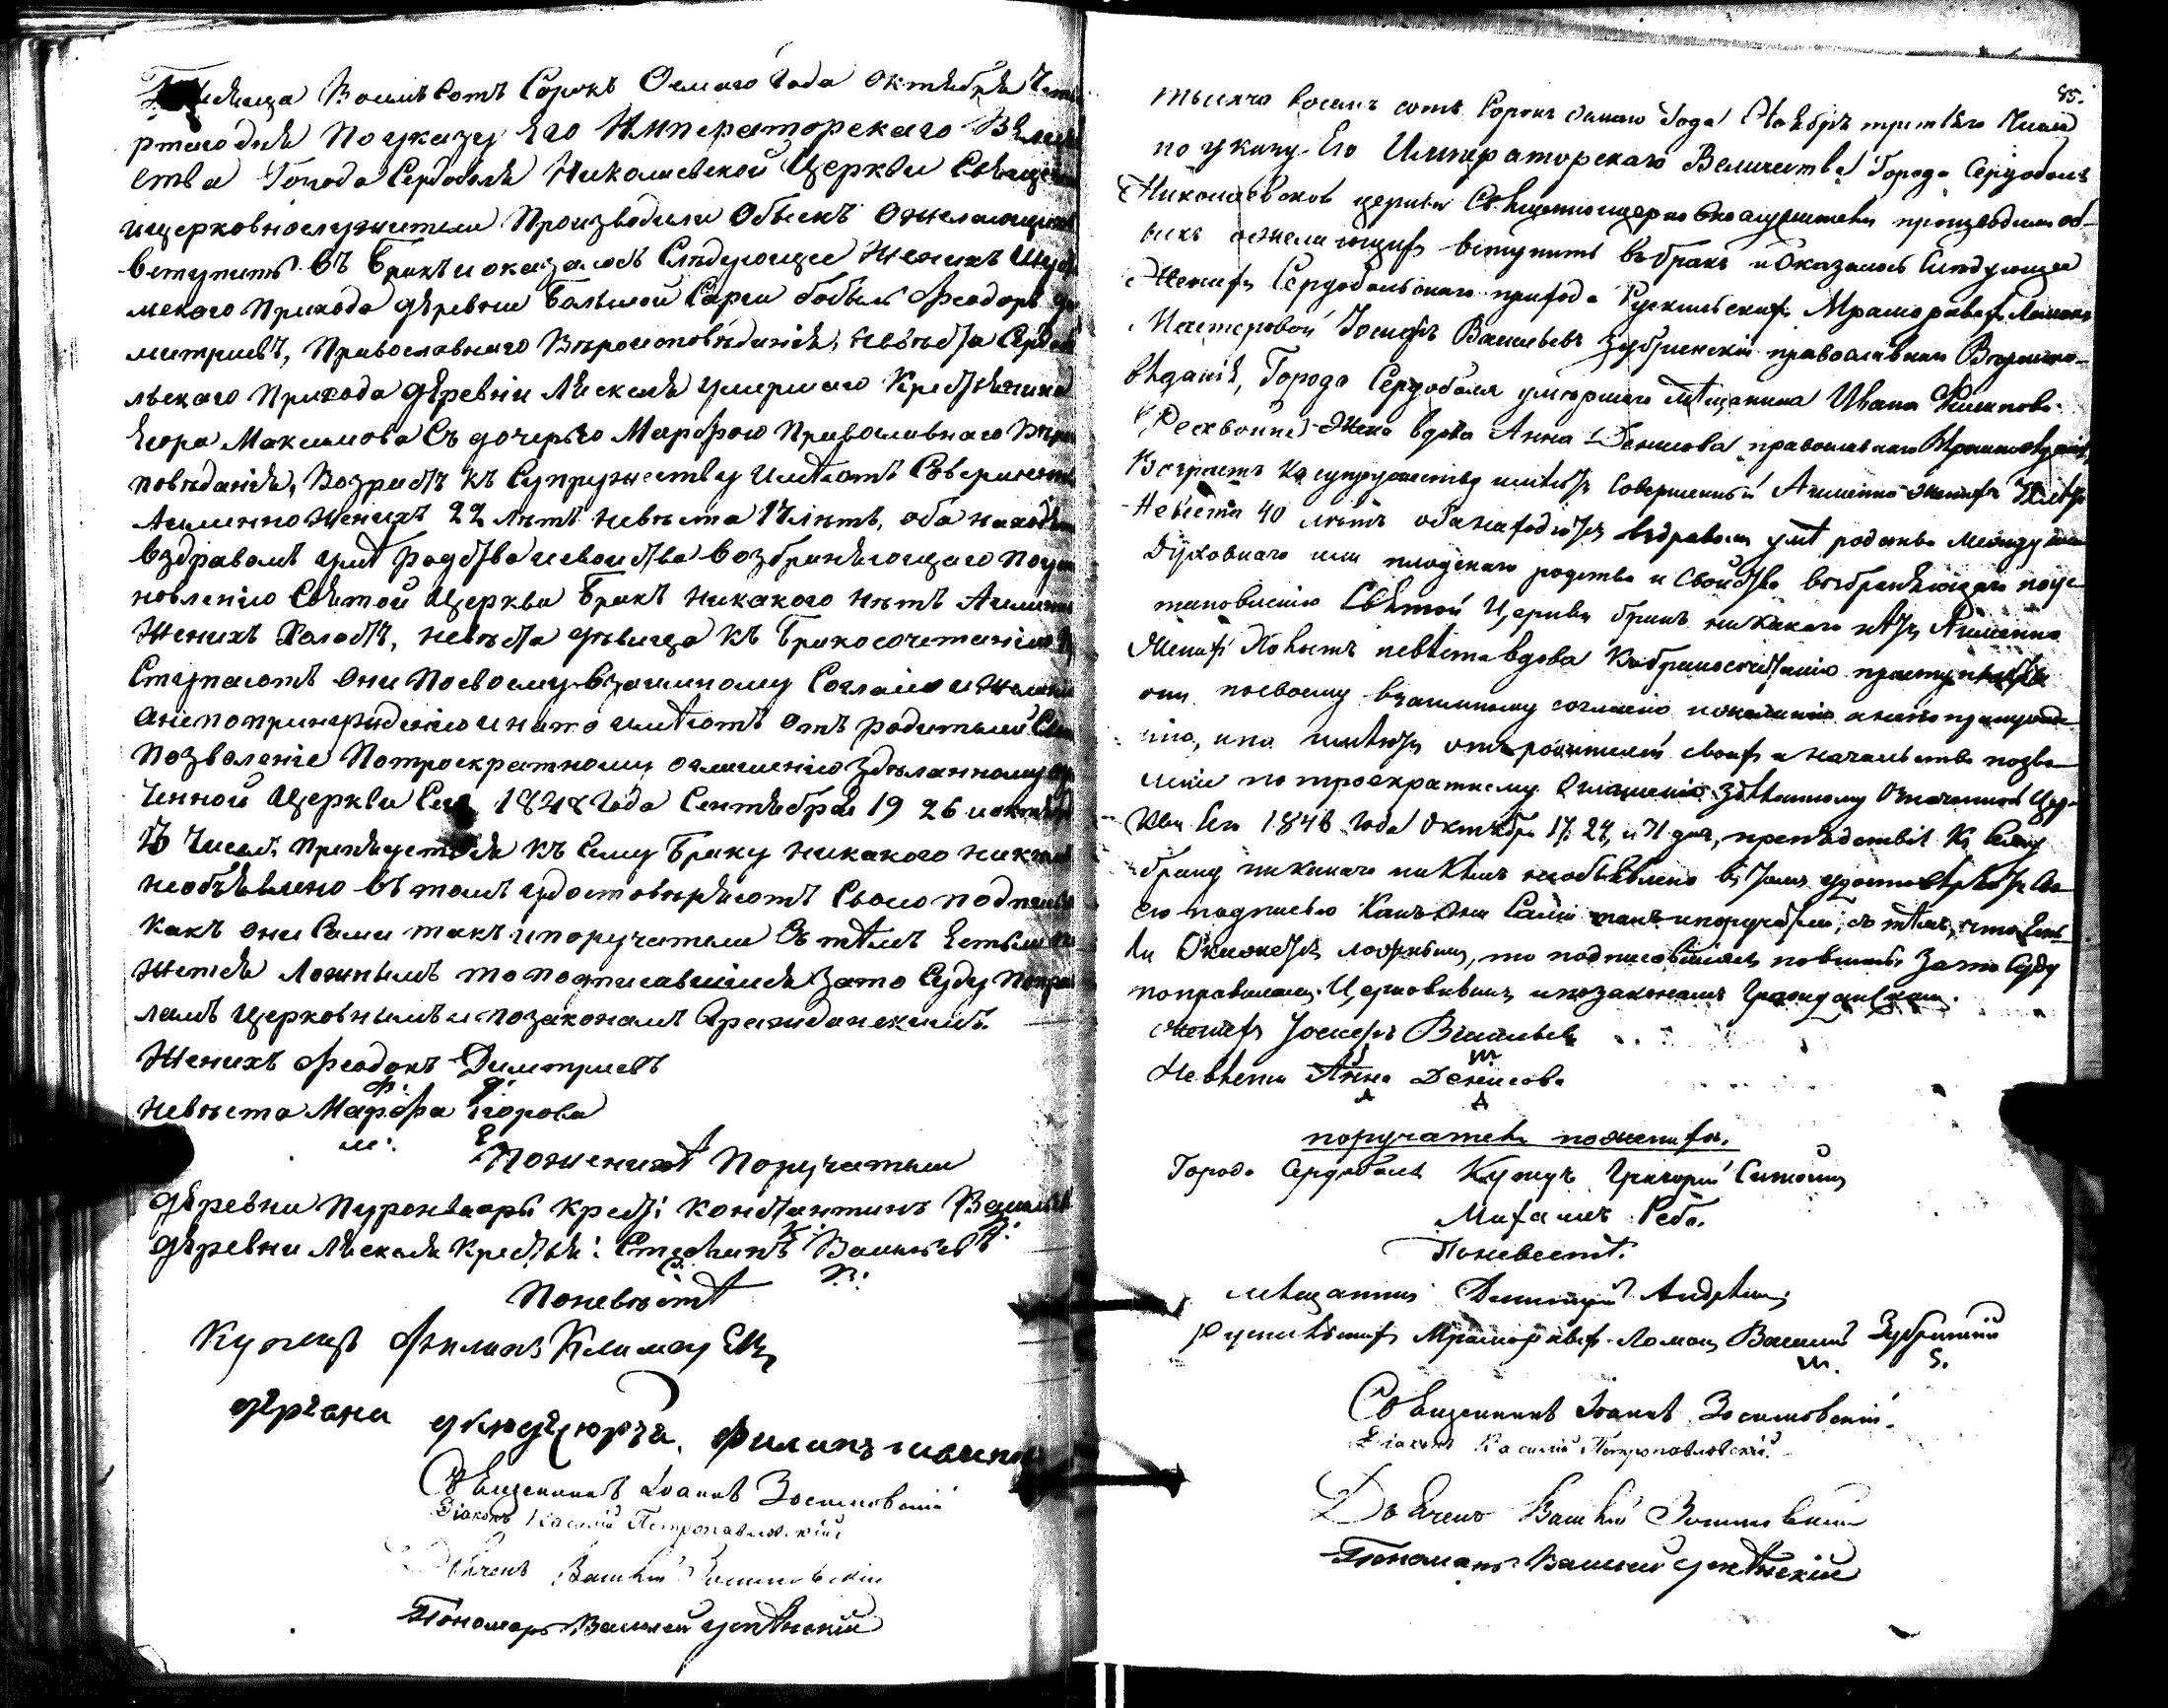 Тысяща Восемъ Сотъ Сорокъ Осмаго Года Октября Четве
ртаго дня По указу Его Императорскаго Велич
ества Города Сердоболя Николаевской Церкви Священно
ицерковнослужители Производили Обыскъ Ожелающихъ
вступить въ Бракъ иоказалось Следующее Женихъ
мскаго Прихода Деревни Бальшой Сареи бобыль Феодоръ Ди
митриевъ, Православнаго Вероисповѣданія, невѣста Сердобо
льскаго Прихода Деревни Ляскеля умершаго Крестьянина
Егора Максимова Съ дочерью Марфою Православнаго Вероис
поведанія, Возрастъ къ Супружеству имѣютъ Совершенный
Аименно Женихъ 22 лѣтъ невѣста 17 лѣтъ, оба находятся
вздравомъ умѣ Родства исвойства возбраняющаго Поуста
новленію Святой Церкви Бракъ никакого нѣтъ Аименно
Женихъ Холостъ, невѣста дѣвица къ Бракосочетанію При
Ступаютъ Они Посвоему взаимному Согласію ижеланію
анепопринужденію инато имѣютъ отъ родителей Сво
Позволеніе Потроекратному оглашенію зделанному озна
ченной Церкви Сего 1848 Года Сентября 19 26 иоктября
3 Чиселъ, Препяцствія къ Сему Браку никакого никемъ
необъявлено въ томъ удостовѣряютъ Своею подписью
Какъ Они Сами такъ ипоручатели Съ тѣмъ Естьли ока
жется Ложнымъ то подписавшіися Зато Суду Поправи
ламъ Церковнымъ ипозаконамъ Гражданскимъ.
Женихъ Феодоръ Димитриевъ
Ф. Д.
Невѣста Марфа Егорова
М. Е.
Поженихѣ Поручатели
Деревни крест: Константинъ Васильевъ
К. В.
Деревни Ляскеля Крестья: Стефанъ Васильевъ
С. В.
Поневѣстѣ
Купецъ Филипъ
Филипъ
Священникъ Іоаннъ Зосимовскій
Діаконъ Касьянъ Петропавловскій
Дьячекъ Василій Зосимовскій
Пономарь Василій Успѣнскій
85.
тысяча восемь сотъ сорокъ осмаго Года Ноября третьяго числа
по указу Его Императорскаго Величества Города Сердоболя
Николаевской церкви Священноицерковнослужители производили об
ыскъ ожелающихъ вступить въ бракъ иоказалось Слѣдующее
Женихъ Сердобольскаго прихода Рускильскихъ Мраморныхъ Ломокъ
Мастеровой Іосифъ Васильевъ Зубринскій православнаго Вероиспо
вѣданія, Города Сердоболя умершаго мѣщанина Ивана Филипова
Жена вдова Анна Денисова православнаго Вероисповѣданія,
Возрастъ Ксупружеству имѣютъ Совершенный Аименно женихъ лѣтъ
Невѣста 40 лѣтъ обанаходятся вздравомъ умѣ родства Между ими
Духовнаго или плотскаго родства и Свойства возбраняющаго поус
тановленію Святой Церкви бракъ никакаго нѣтъ, Аименно
Женихъ невѣста вдова Кбракосочетанію приступаютъ
они посвоему взаимному согласію ижеланію анепопринужде
нію, ина имѣютъ отъ родителей своихъ и начальства позво
леніе по троекратному Оглашенію зделанному Означенной Цер
кви Сего 1848 Года Октября 17. 24, и 31 дня, препядствія къ Сему
браку никакаго никѣмъ необъявлено въ томъ удостовѣряютъ Сво
ею подписью Какъ Они Сами такъ ипоручатели, съ тѣмъ, что Есть
ли Окажется ложнымъ, то подписавшіися повинны Зато Суду
поправиламъ Церковнымъ ипозаконамъ Гражданскимъ.
Женихъ Іосифъ Васильевъ
Невѣста Анна Денисова
А Д
поручатели поженихѣ.
Города Сердоболя Купецъ Григорий Ситкинъ
Михаилъ
Поневестѣ.
Мѣщанинъ Димитрій Андрѣевъ
Рускильскихъ Мраморныхъ Ломокъ Василій Зубринскій
Священникъ Іоаннъ Зосимовскій.
Діаконъ Касьянъ Петропавловскій.
Дьячекъ Василій Зосимовскій
Пономарь Василій Успѣнскій